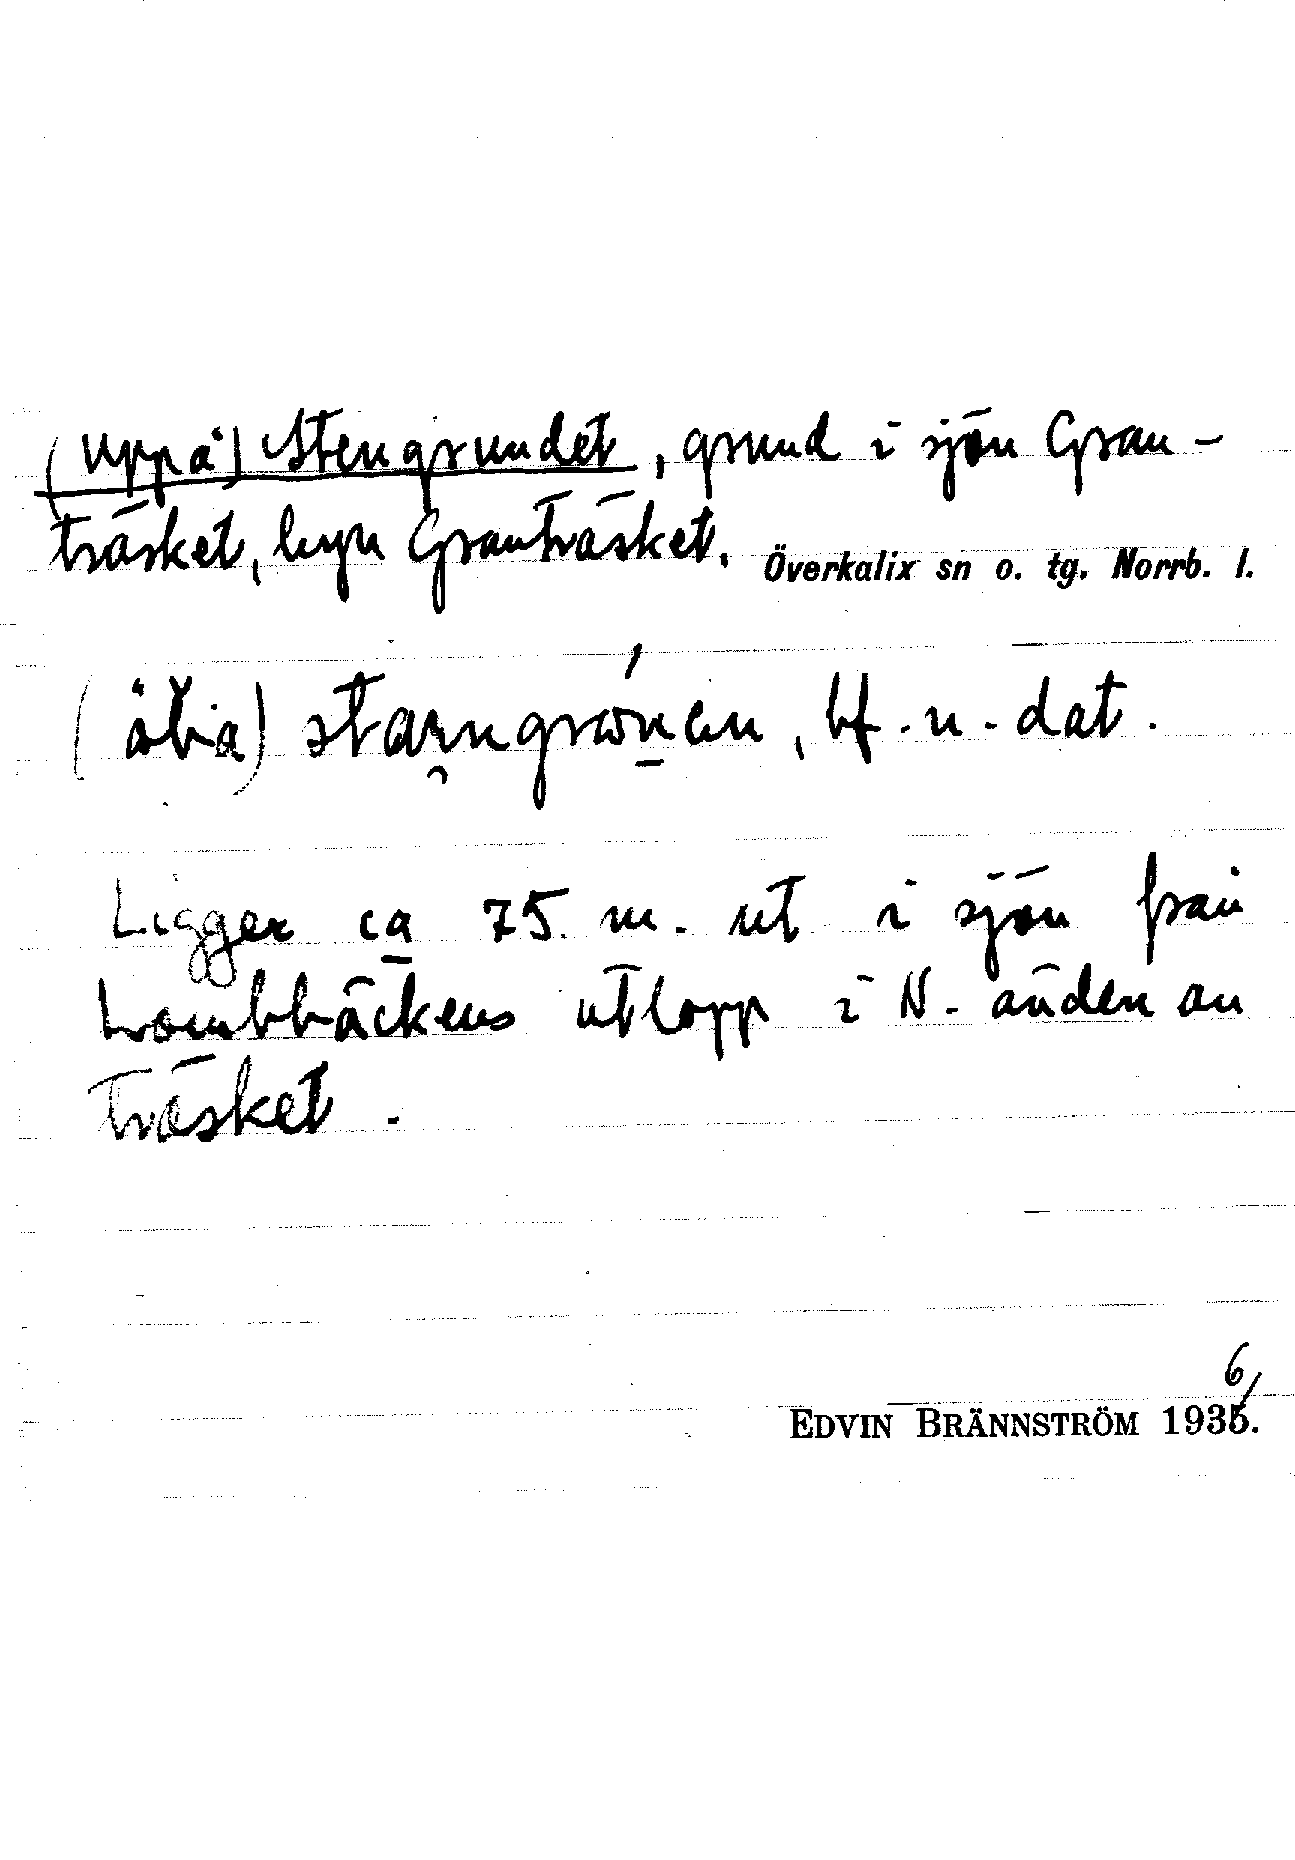 (uppå) Stengrundet, grund i sjön Gran-
träsket, byn Granträsket. Överkalix sn o. tg. Norrb. l.
bf. n. dat.
Ligger ca 75 m. ut i sjön från
utlopp i N. änden av
träsket.
6
EDVIN BRÄNNSTRÖM 1935.